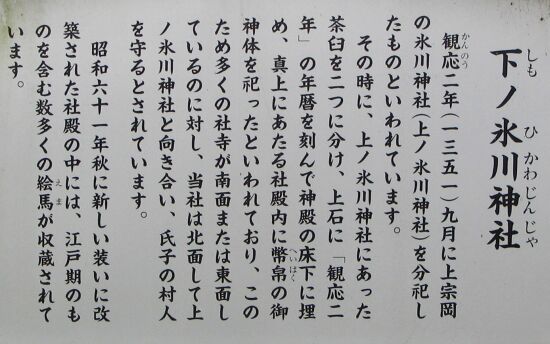 下ノ氷川神社
しも ひかわじんじゃ
観応二年(一三五一)九月に上宗岡
かんのう
の氷川神社(上ノ氷川神社)を分祀し
たものといわれています。
その時に、上ノ氷川神社にあった
茶臼を二つに分け、上石に「観応二
年」の年暦を刻んで神殿の床下に埋
め、真上にあたる社殿内に幣帛の御
へいはく
神体を祀ったといわれており、この
ため多くの社寺が南面または東面し
ているのに対し、当社は北面して上
ノ氷川神社と向き合い、氏子の村人
を守るとされています。
昭和六十一年秋に新しい装いに改
築された社殿の中には、江戸期のも
のを含む数多くの絵馬が収蔵されて
えま
います。